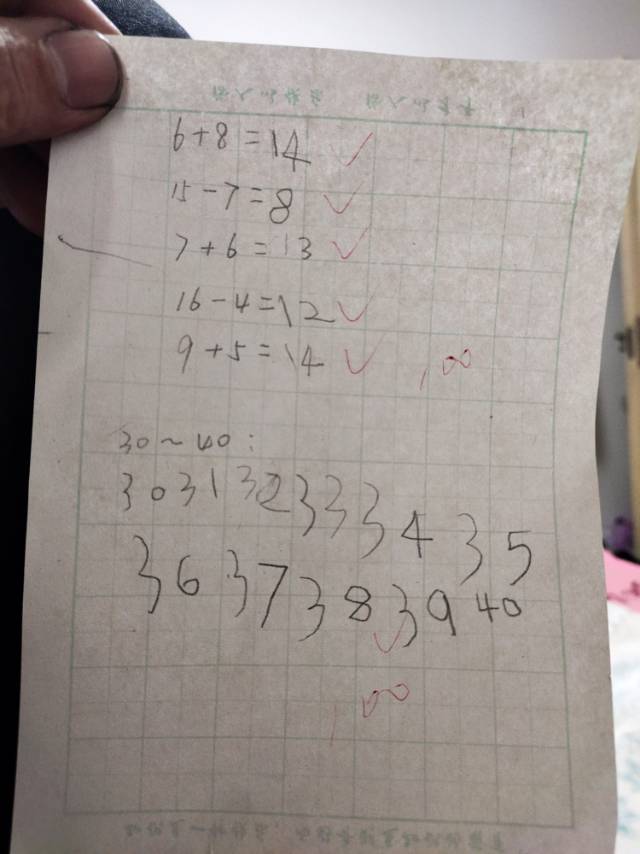 6+8=14
15-7=8
7+6=13
16-4=12
9+5=14
100
30~40:
30 31 32 33 34 35
36 37 38 39 40
100